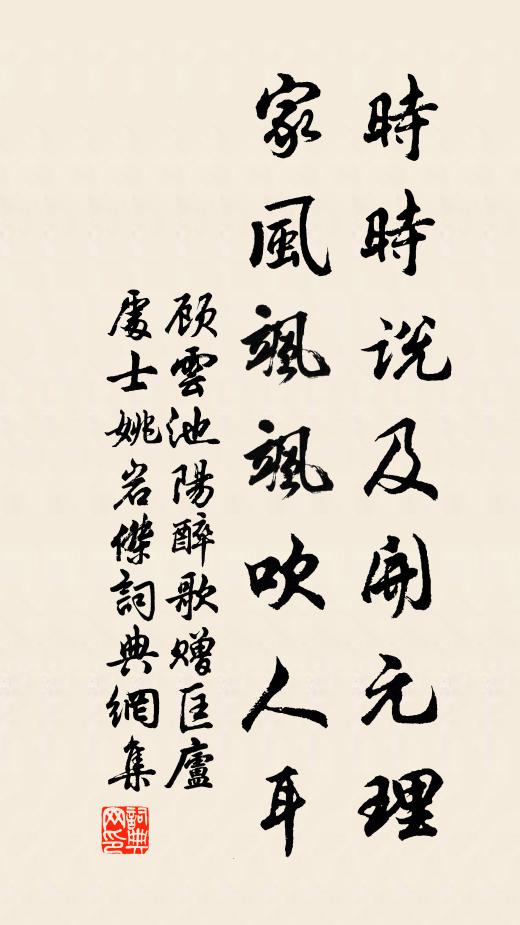 時時説及開元理
家風颯颯吹人耳
顾雲池陽醉歌赠匡廬
處士姚岩傑詞典網集
詞典
网印